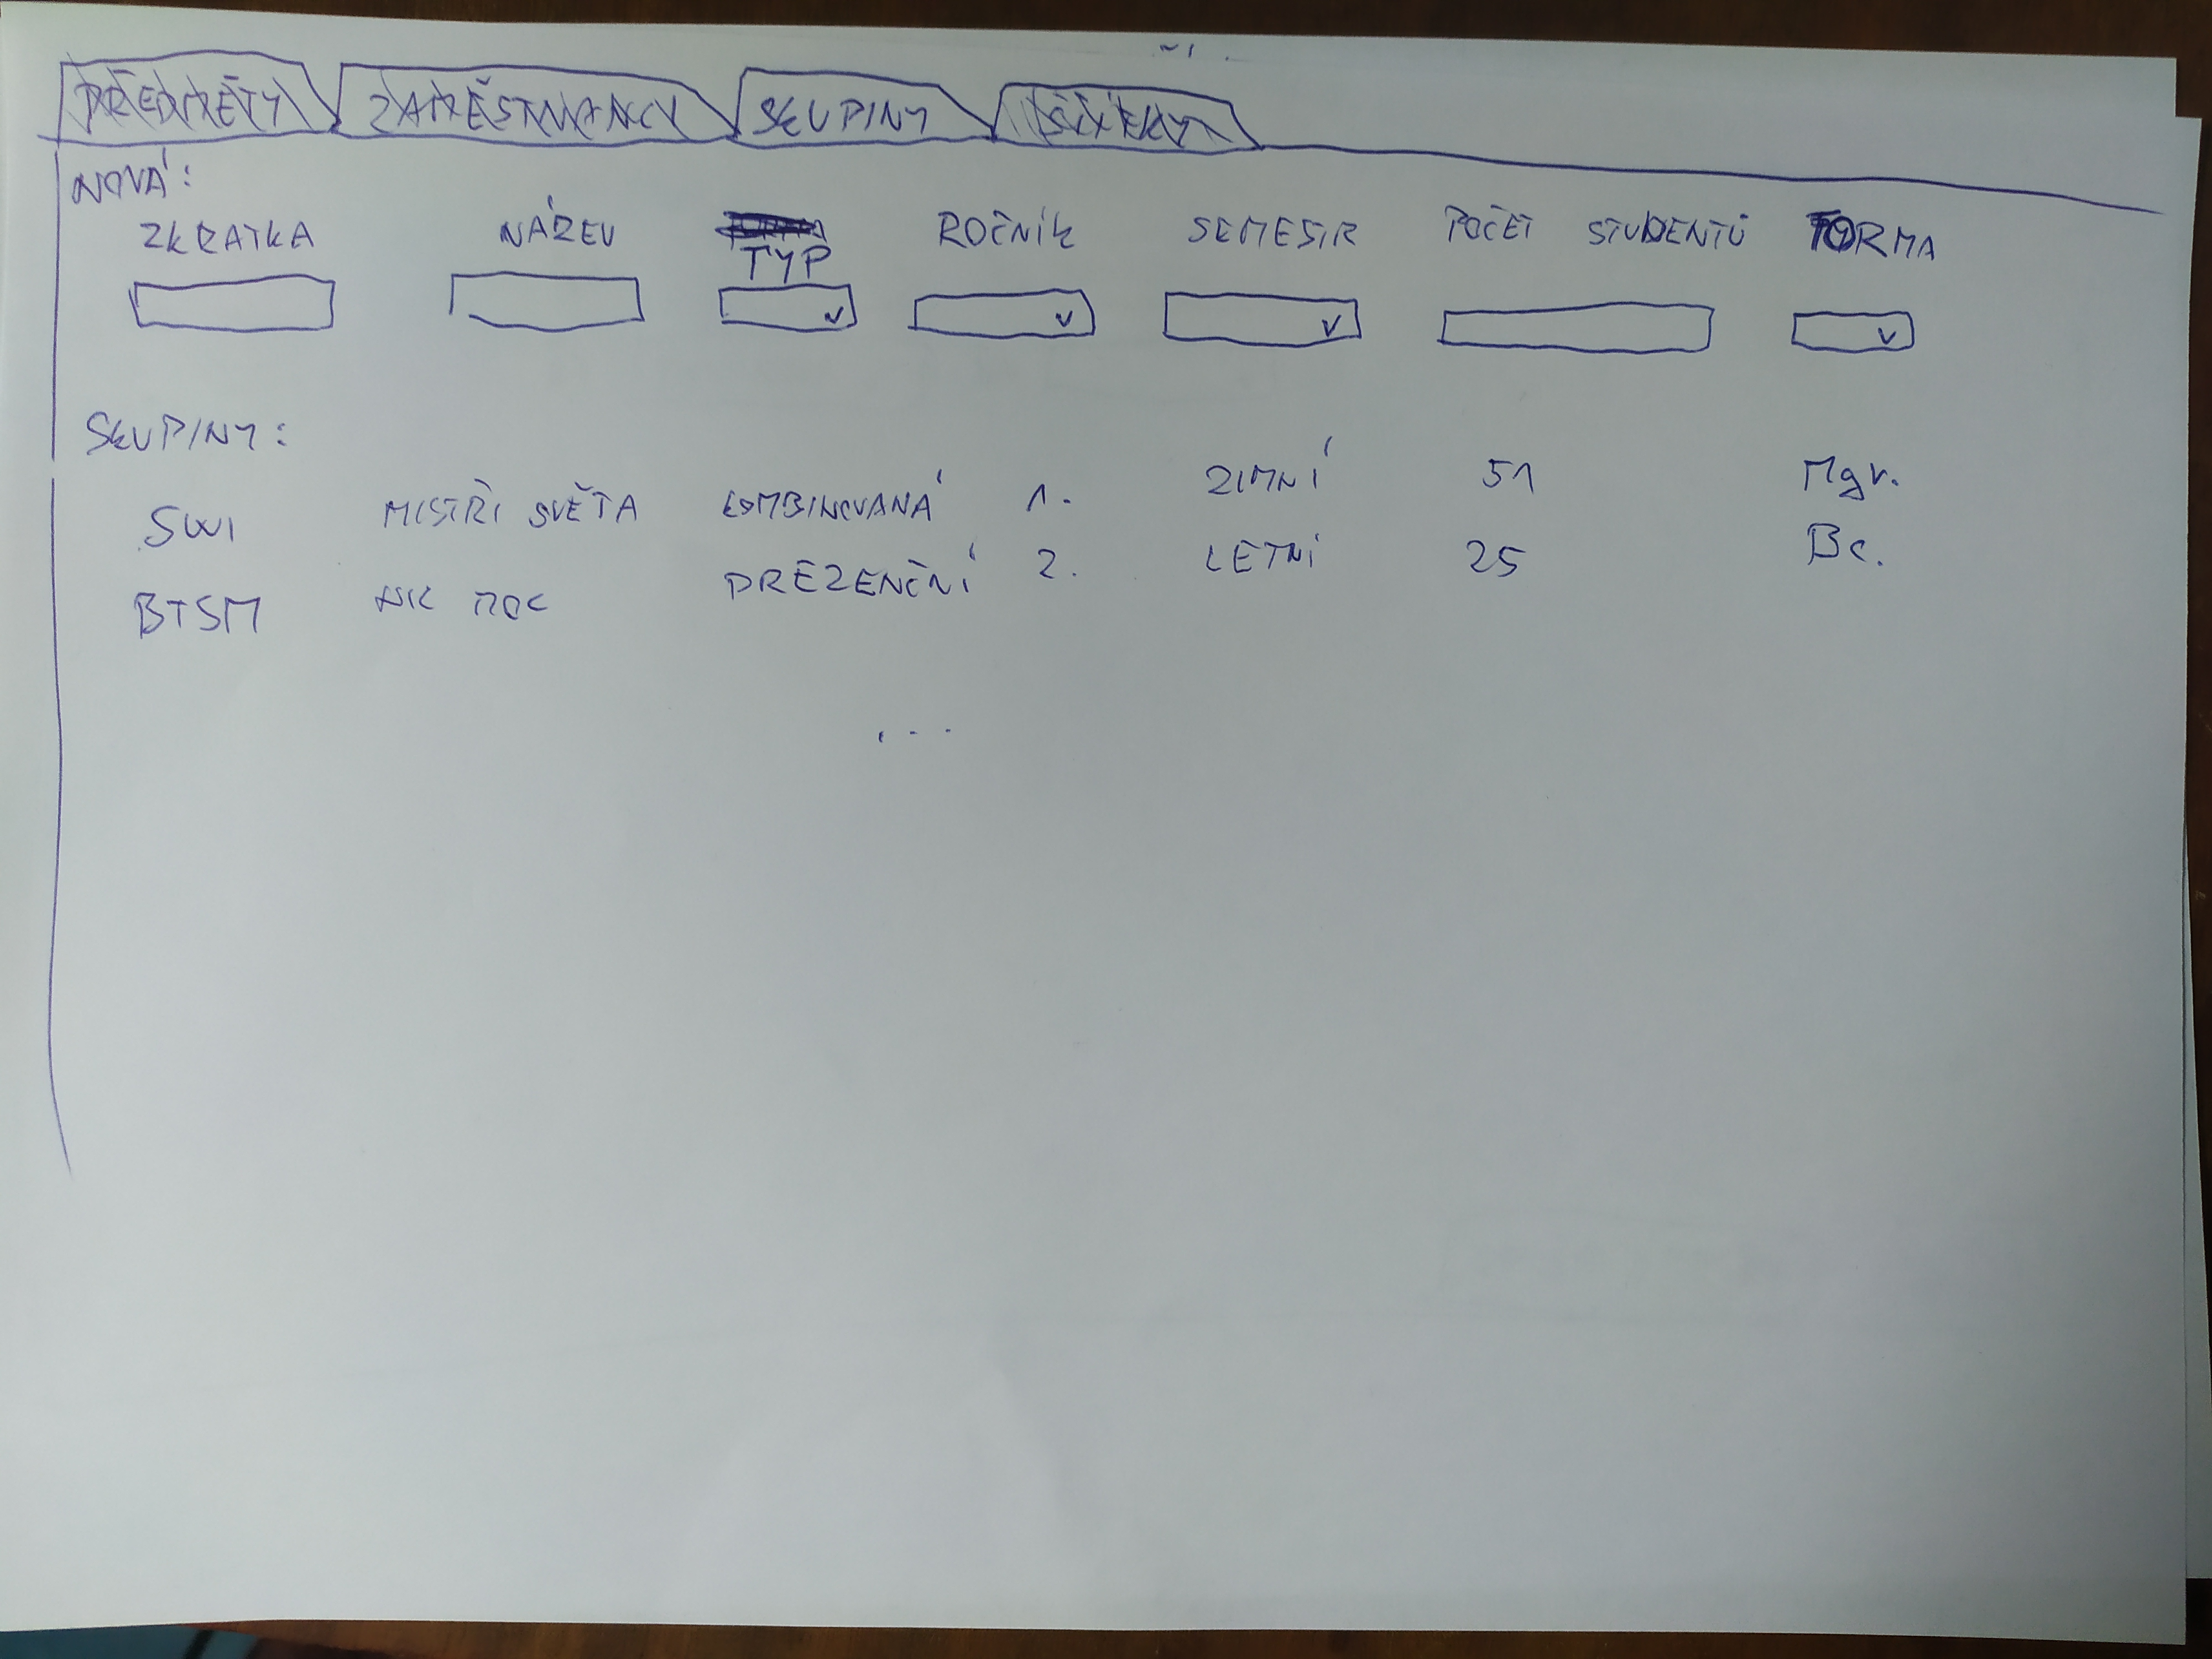 PŘEDMĚTY ZAMĚSTNANCI SKUPINY ŠTÍTKY
NOVÁ:
ZKRATKA NÁZEV TYP ROČNÍK SEMESTR POČET STUDENTŮ FORMA
SKUPINY:
SWI MISTŘI SVĚTA KOMBINOVANÁ 1. ZIMNÍ 51 Mgr.
BTSM MOC PREZENČNÍ 2. LETNÍ 25 Bc.
...